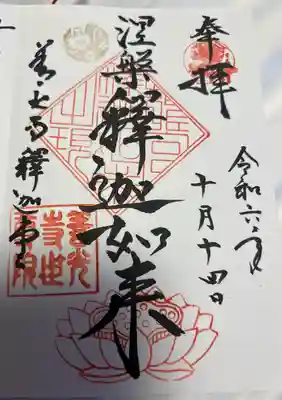 奉拝
令和六年
十月十四日
涅槃釋迦如来
善光寺釋迦堂